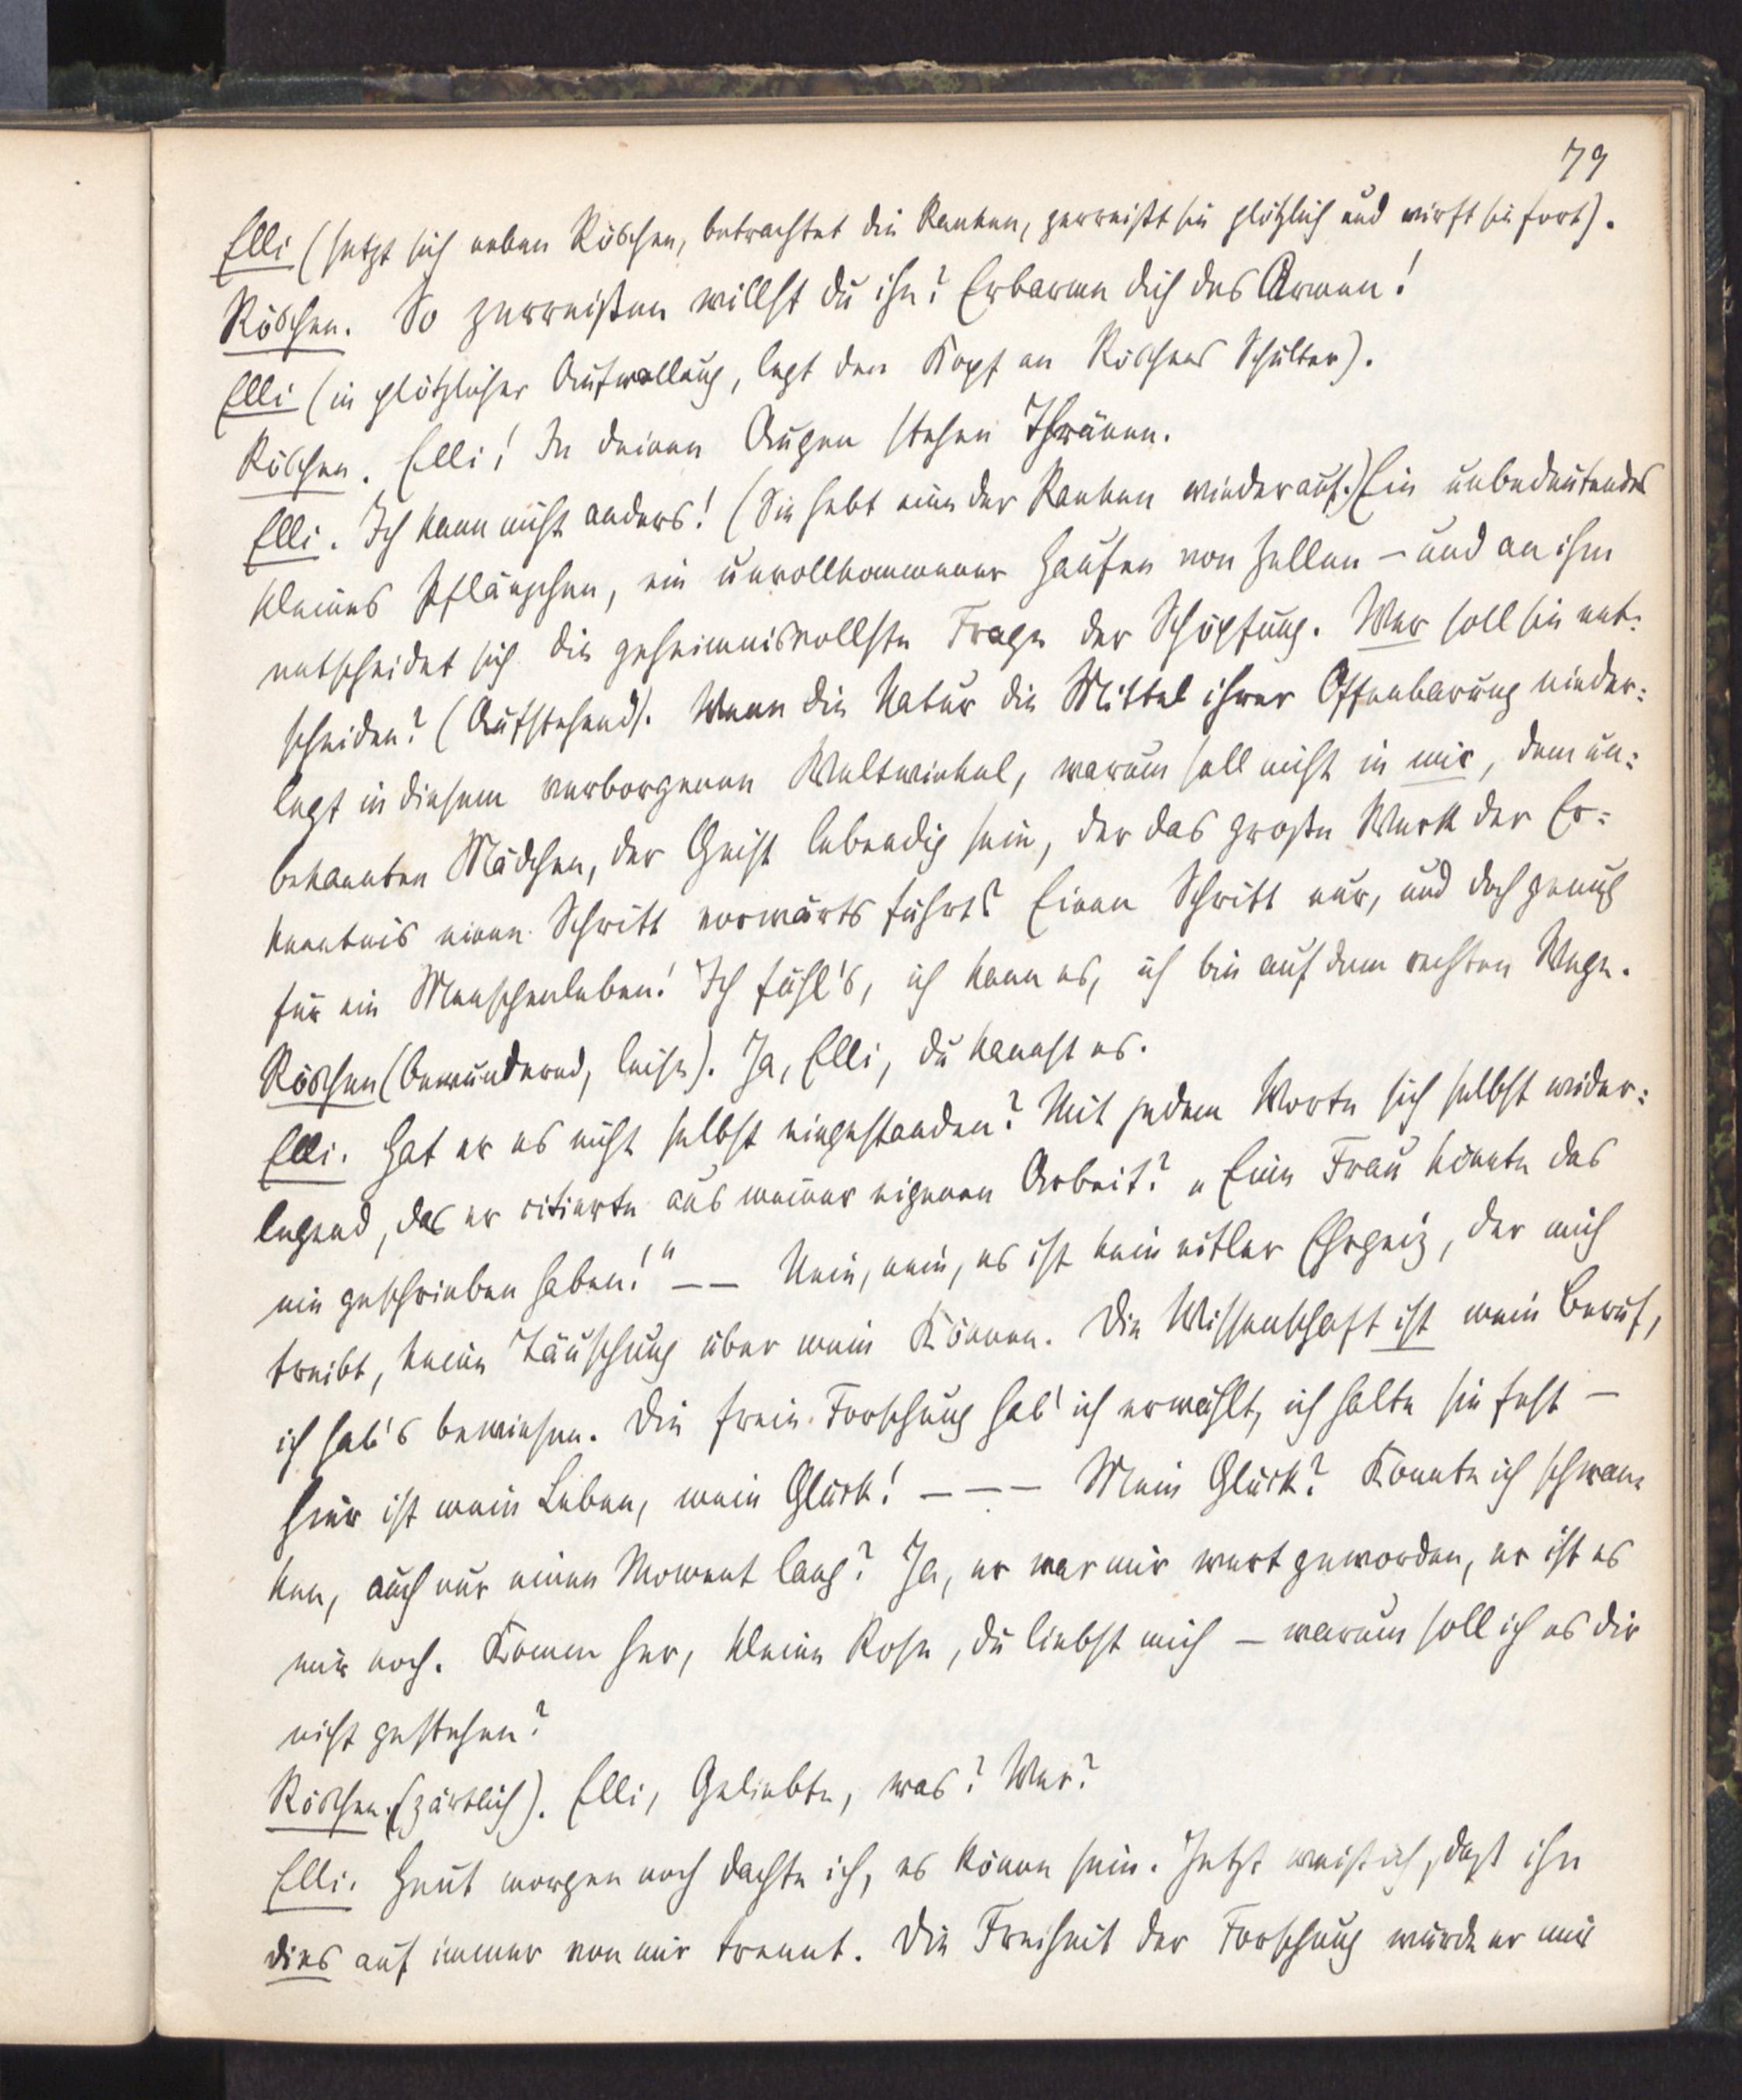 79
Elli (setzt sich neben Röschen, betrachtet die Ranken, zerreißt sie plötzlich und wirft sie fort).
Röschen. So zerreißen willst du ihn? Erbarme dich des Armen!
Elli (in plötzlicher Aufwallung, legt den Kopf an Röschens Schulter).
Röschen. Elli! In deinen Augen stehen Thränen.
Elli. Ich kann nicht anders! (Sie hebt eine der Ranken wieder auf.) Ein unbedeutendes
kleines Pflänzchen, ein unvollkommener Haufen von Zellen – und an ihm
entscheidet sich die geheimnisvollste Frage der Schöpfung. Wer soll sie ent:
scheiden? (Aufstehend). Wenn die Natur die Mittel ihrer Offenbarung nieder:
legt in diesem verborgenen Weltwinkel, warum soll nicht in mir, dem un:
bekannten Mädchen, der Geist lebendig sein, der das große Werk der Er=
kenntnis einen Schritt vorwärts führt? Einen Schritt nur, und doch genug
für ein Menschenleben! Ich fühl's, ich kann es, ich bin auf dem rechten Wege.
Röschen (bewundernd, leise). Ja, Elli, du kannst es.
Elli. Hat er es nicht selbst eingestanden? Mit jedem Worte sich selbst wider:
legend, das er citierte aus meiner eigenen Arbeit? „Eine Frau könnte das
nie geschrieben haben!" –– Nein, nein, es ist kein eitler Ehrgeiz, der mich
treibt, keine Täuschung über mein Können. Die Wissenschaft ist mein Beruf,
ich hab's bewiesen. Die freie Forschung hab' ich erwählt, ich halte sie fest –
hier ist mein Leben, mein Glück! ––– Mein Glück? Konnte ich schwan:
ken, auch nur einen Moment lang? Ja, er war mir wert geworden, er ist es
mir noch. Komm her, kleine Rose, du liebst mich – warum soll ich es dir
nicht gestehen?
Röschen. (zärtlich). Elli, Geliebte, was? Wer?
Elli. Heut morgen noch dachte ich, es könne sein. Jetzt weiß ich, daß ihn
dies auf immer von mir trennt. Die Freiheit der Forschung würde er mir